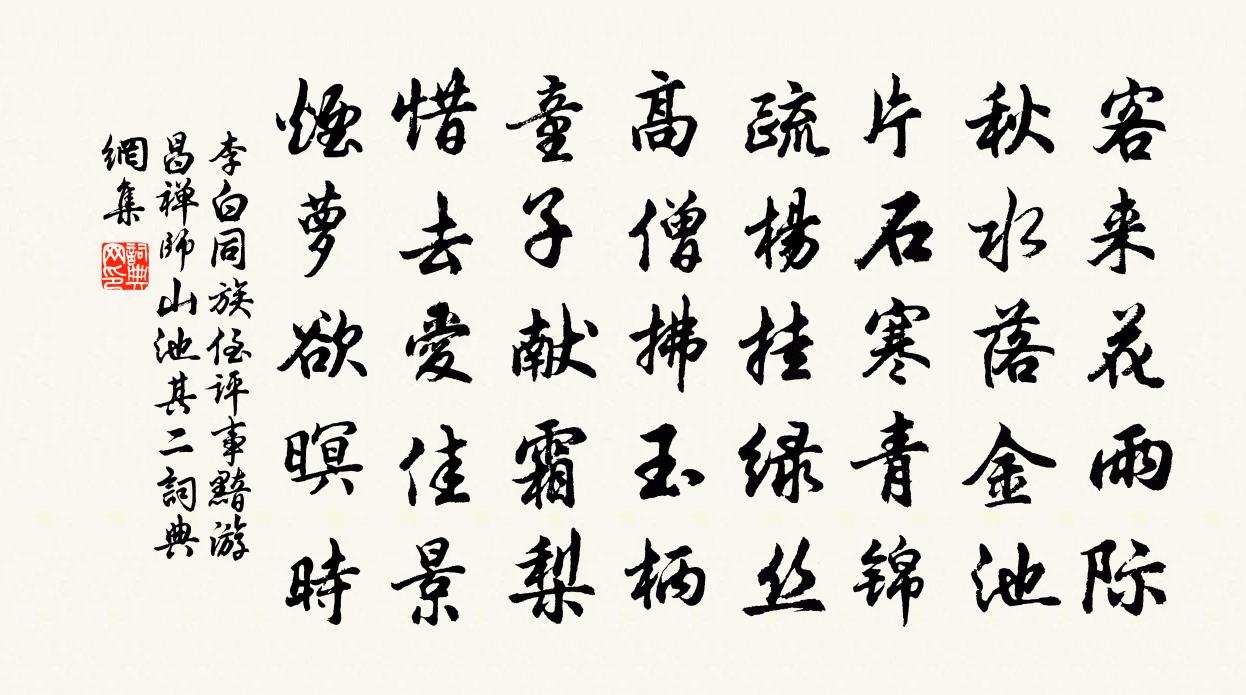 客来花雨际
秋水落金池
片石寒青锦
疏杨挂绿丝
高僧拂玉柄
童子献霜梨
惜去愛佳景
煙萝欲暝時
李白同族侄评事黯游
昌禅師山池其二詞典
網集
詞典
网印